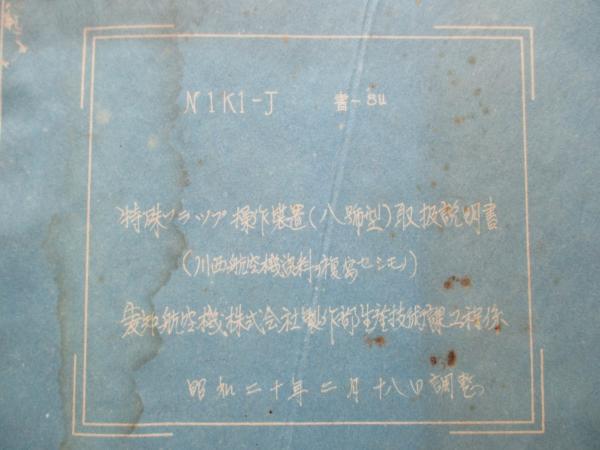 N1K1-J 書-su
特殊フラップ操作装置(八號型)取扱説明書
(川西航空機資料ヨリ複寫セシモノ)
愛知航空機株式会社製作部生産技術課工程係
昭和二十年二月十八日調整